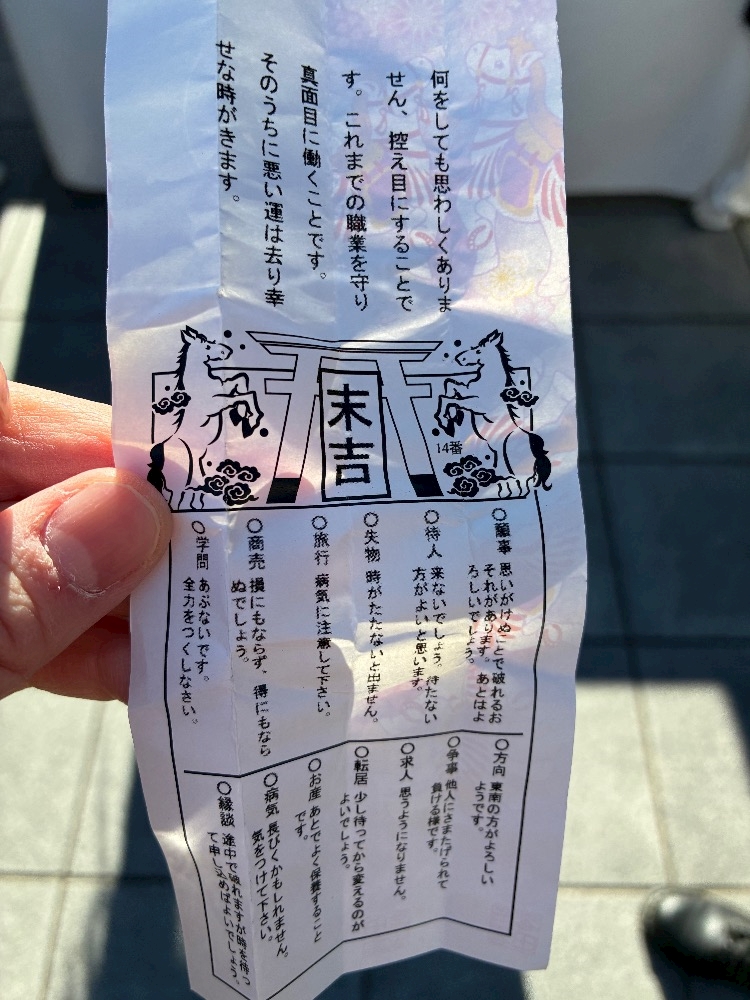 何をしても思わしくありま
せん、控え目にすることで
す。これまでの職業を守り
真面目に働くことです。
そのうちに悪い運は去り幸
せな時がきます。
末吉
14番
○願事 思いがけぬことで破れるお
それがあります。あとはよ
ろしいでしょう。
○待人 来ないでしょう。待たない
方がよいと思います。
○失物 時がたたないと出ません。
○旅行 病気に注意して下さい。
○商売 損にもならず、得にもなら
ぬでしょう。
○学問 あぶないです。
全力をつくしなさい。
○方向 東南の方がよろしい
ようです。
○争事 他人にさまたげられて
負ける様です。
○求人 思うようになりません。
○転居 少し待ってから変えるのが
よいでしょう。
○お産 あとでよく保養すること
です。
○病気 長びくかもしれません。
気をつけて下さい。
○縁談 途中で破れますが時を待っ
て申し込めばよいでしょう。